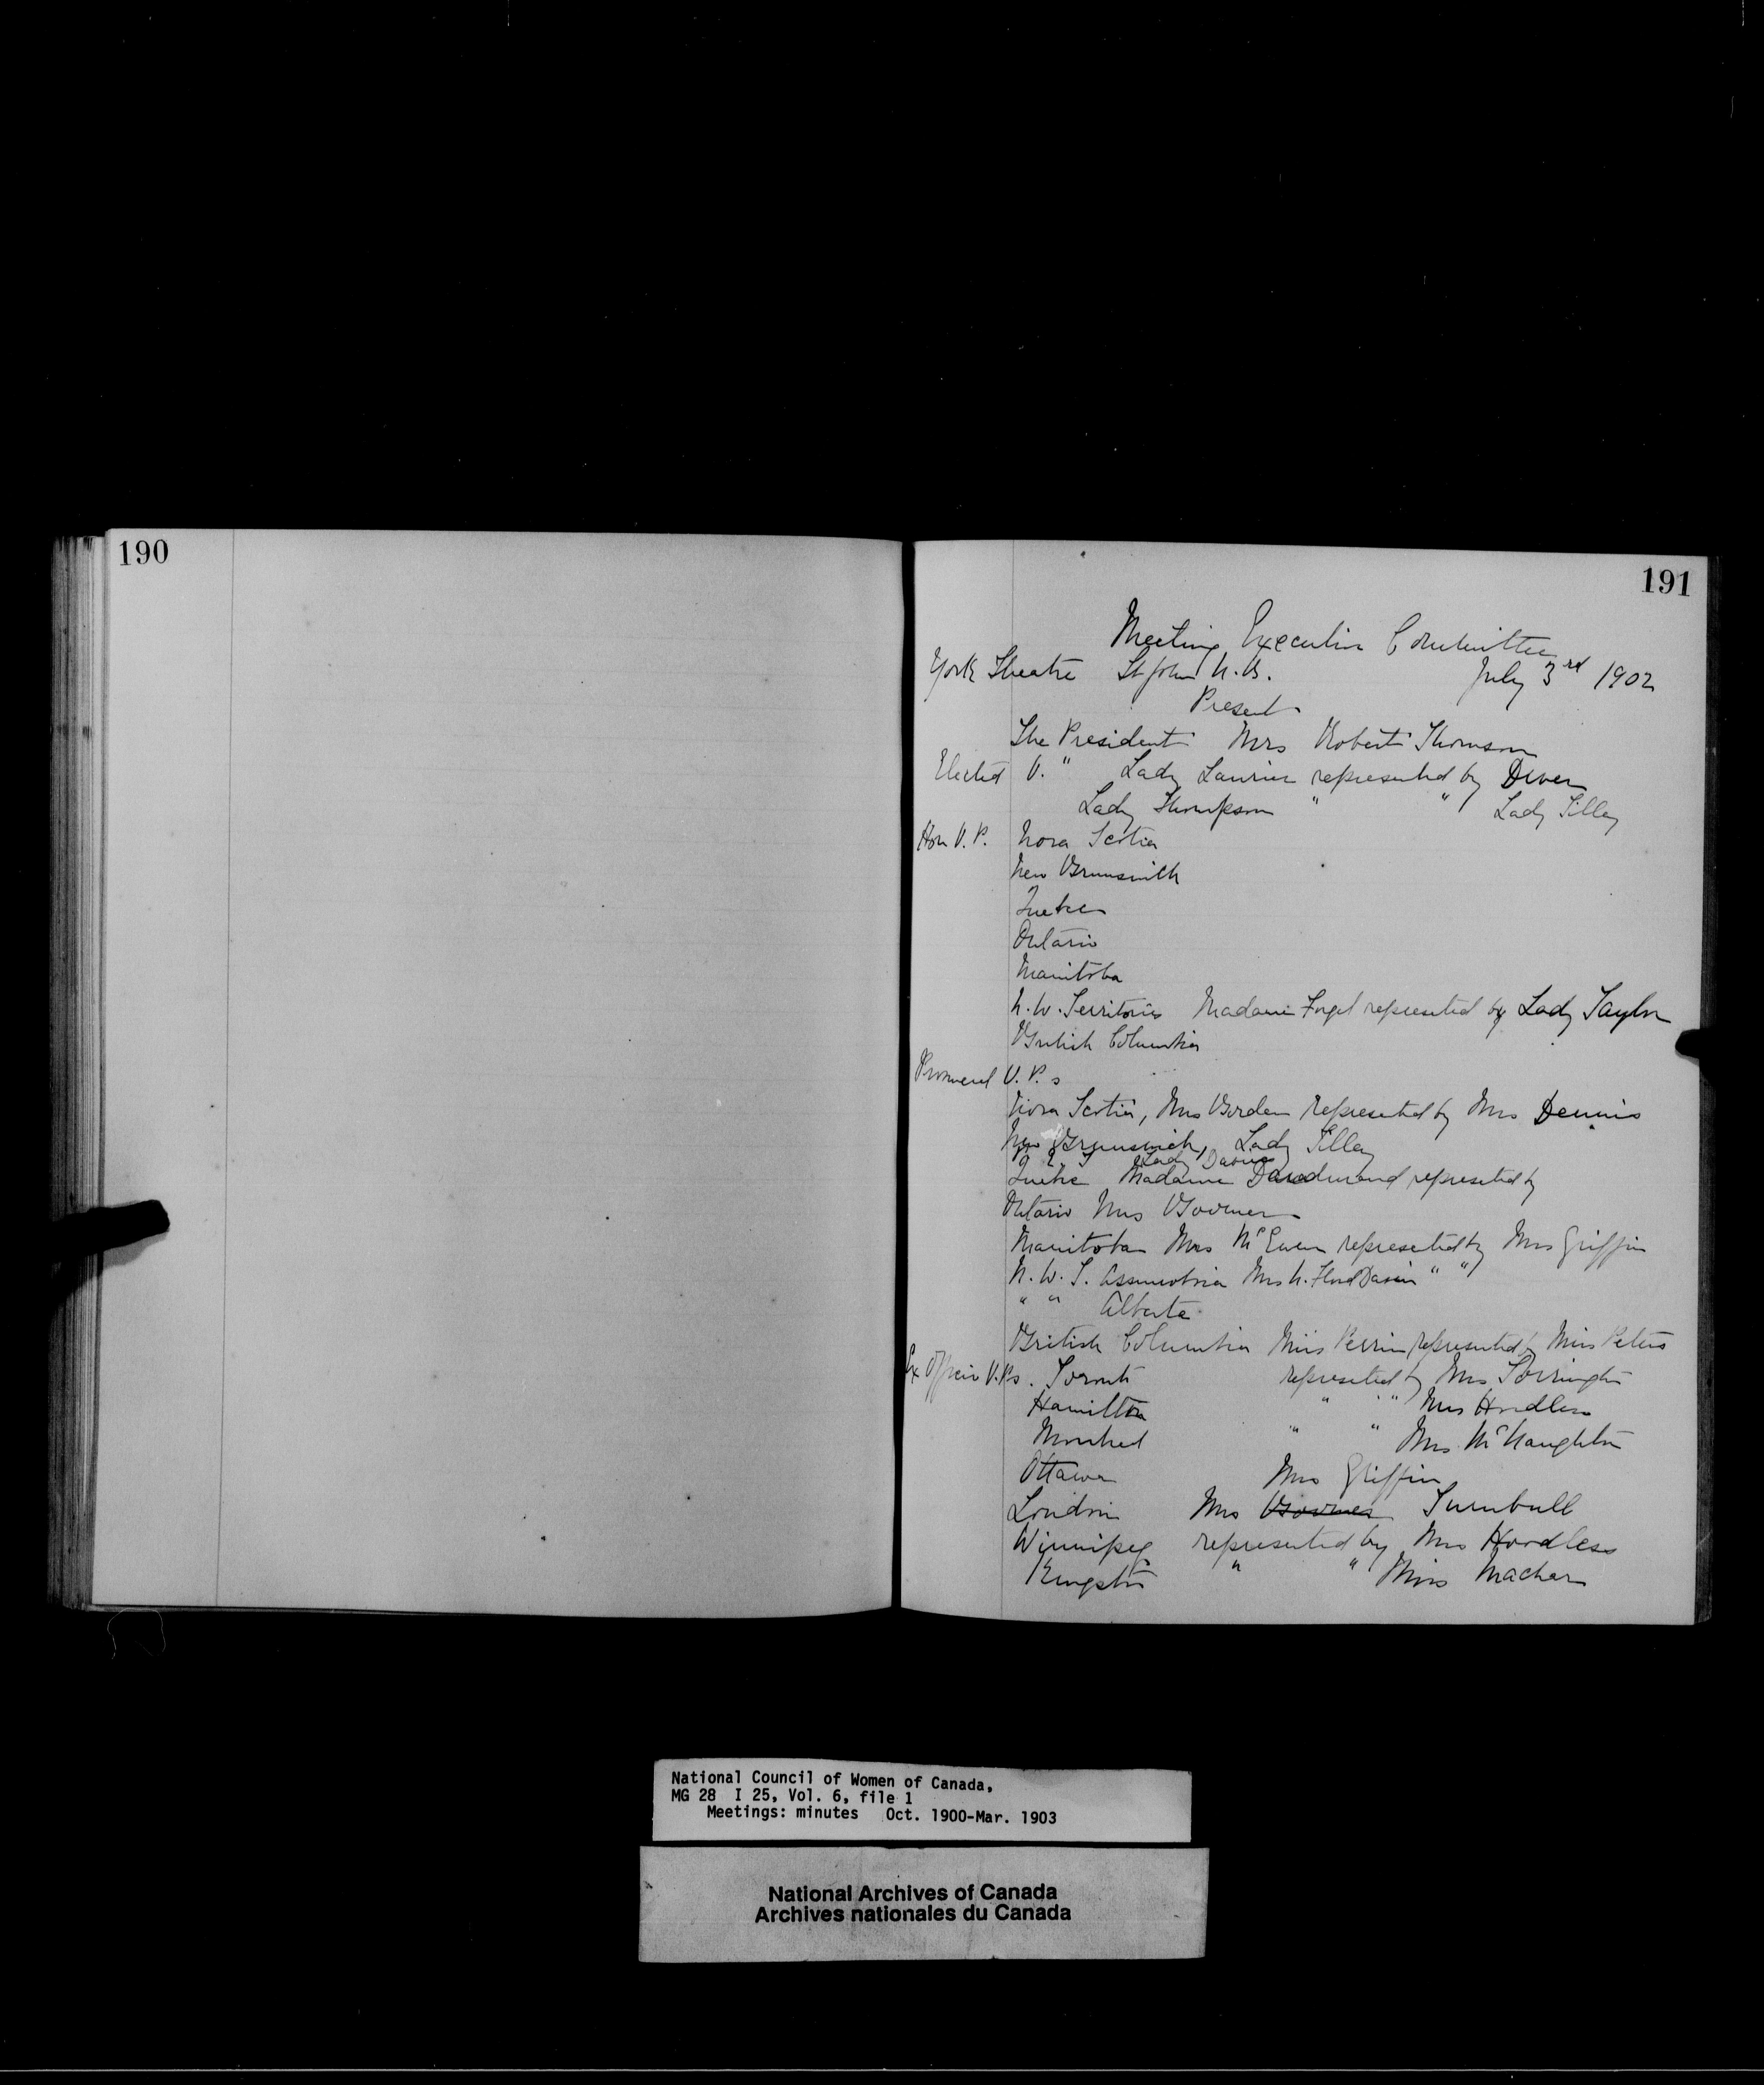 190
191
Meeting Executive Committee
York Theatre St John N.B. July 3rd 1902
Present
The President Mrs Robert Thomson
Elected V. " Lady Laurier represented by Dever
Lady Thompson " " Lady Tilley
Hon V. P. Nova Scotia
New Brunswick
Quebec
Ontario
Manitoba
N. W. Territories Madame Forget represented by Lady Taylor
British Columbia
Provincial V. P. s
Nova Scotia, Mrs Borden represented by Mrs Dennis
New Brunswick, Lady Tilley
P. E. I Lady Davies
Quebec Madame Dandurand represented by
Ontario Mrs Boomer
Manitoba Mrs McEwen represented by Mrs Griffin
N. W. T. Assiniboia Mrs N. Flood Davin " "
" " Alberta
British Columbia Miss Perrin represented by Miss Peters
Ex Officio V.Ps. Toronto represented by Mrs Torrington
Hamilton " " Mrs Hoodless
Montreal " " Mrs McNaughton
Ottawa Mrs Griffin
London Mrs Boomer Turnbull
Winnipeg represented by Mrs Hoodless
Kingston " " Miss Machar
National Council of Women of Canada,
MG 28 I 25, Vol. 6, file 1
Meetings: minutes Oct. 1900-Mar. 1903
National Archives of Canada
Archives nationales du Canada